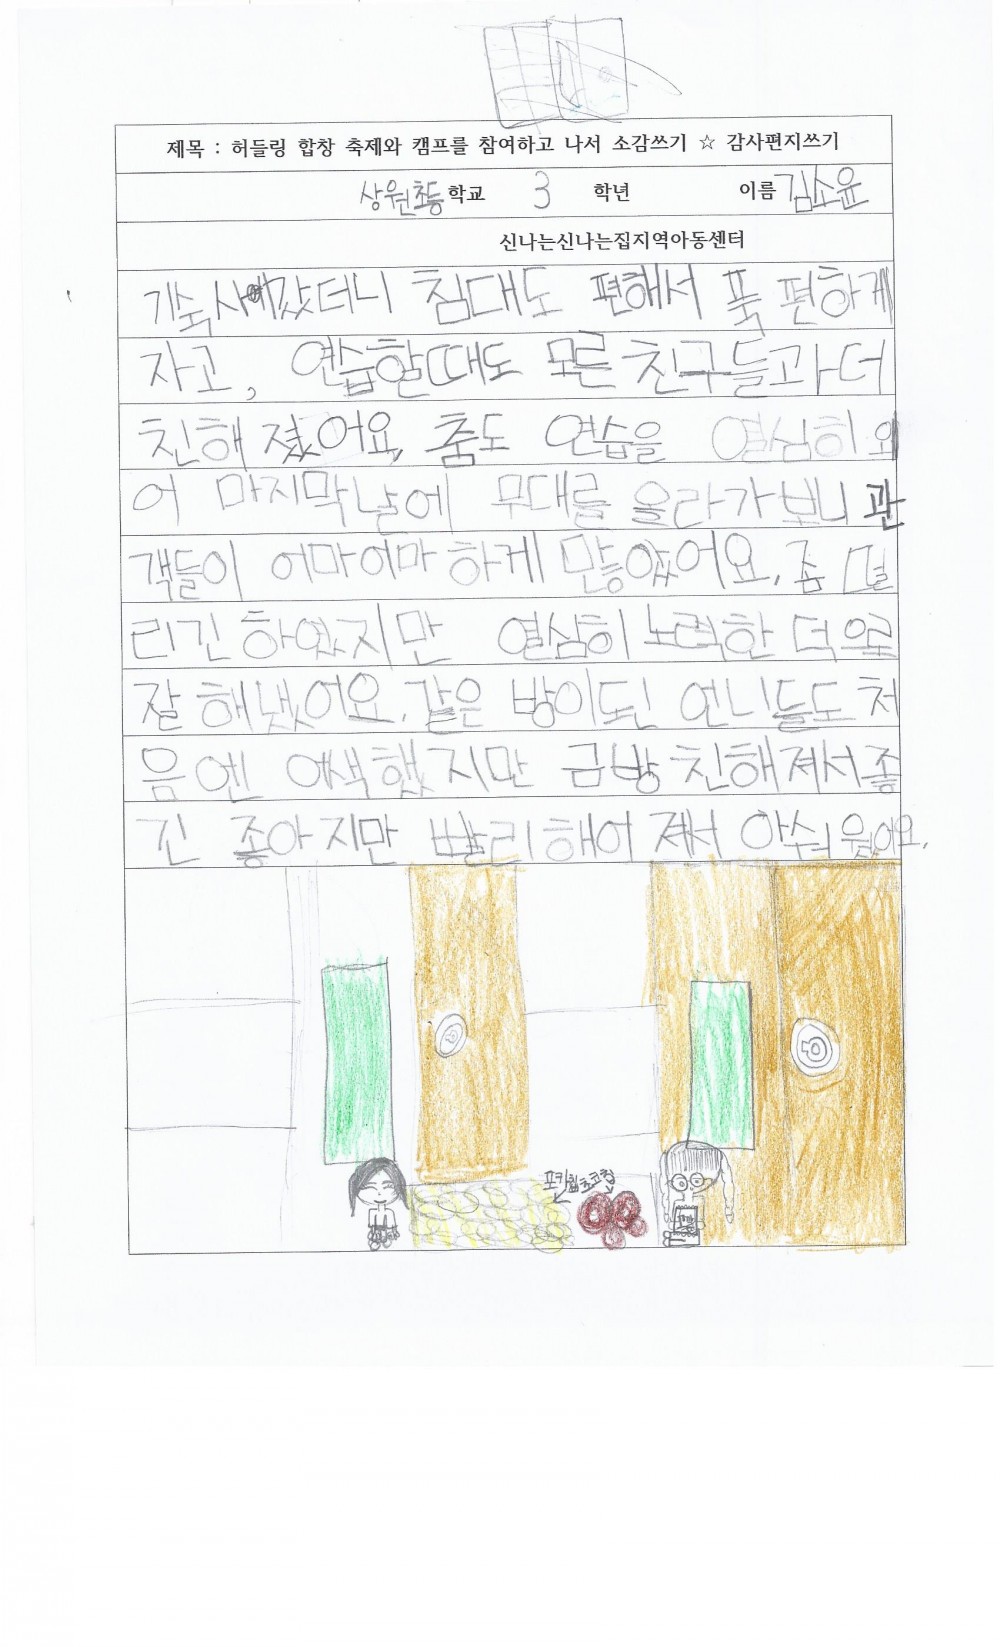 제목 : 허들링 합창 축제와 캠프를 참여하고 나서 소감쓰기 ☆ 감사편지쓰기
상원초등 학교 3 학년 이름 김소윤
신나는신나는집지역아동센터
기숙사에갔더니 침대도 편해서 푹 편하게
자고, 연습할때도 모른 친구들과 더
친해졌어요, 춤도 연습을 열심히 외
어 마지막날에 무대를 올라가 보니 관
객들이 어마어마 하게 많았어요, 좀 떨
리긴 하였지만 열심히 노력한 덕으로
잘 해냈어요, 같은 방이된 언니들도 처
음엔 어색했지만 금방 친해져서 좋
긴 좋아지만 빨리 해어 져서 아쉬웠어요,
포키칩 초코칩